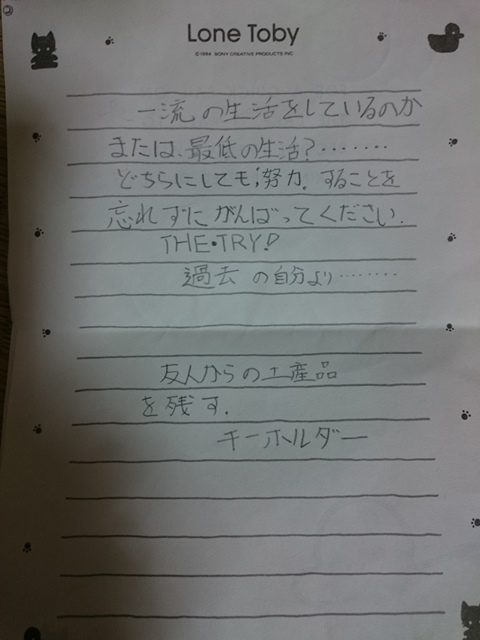 Lone Toby
©1994 SONY CREATIVE PRODUCTS INC.
一流の生活をしているのか
または、最低の生活?........
どちらにしても、努力。することを
忘れずにがんばってください.
THE・TRY!
過去の自分より........
友人からの土産品
を残す.
チーホルダー